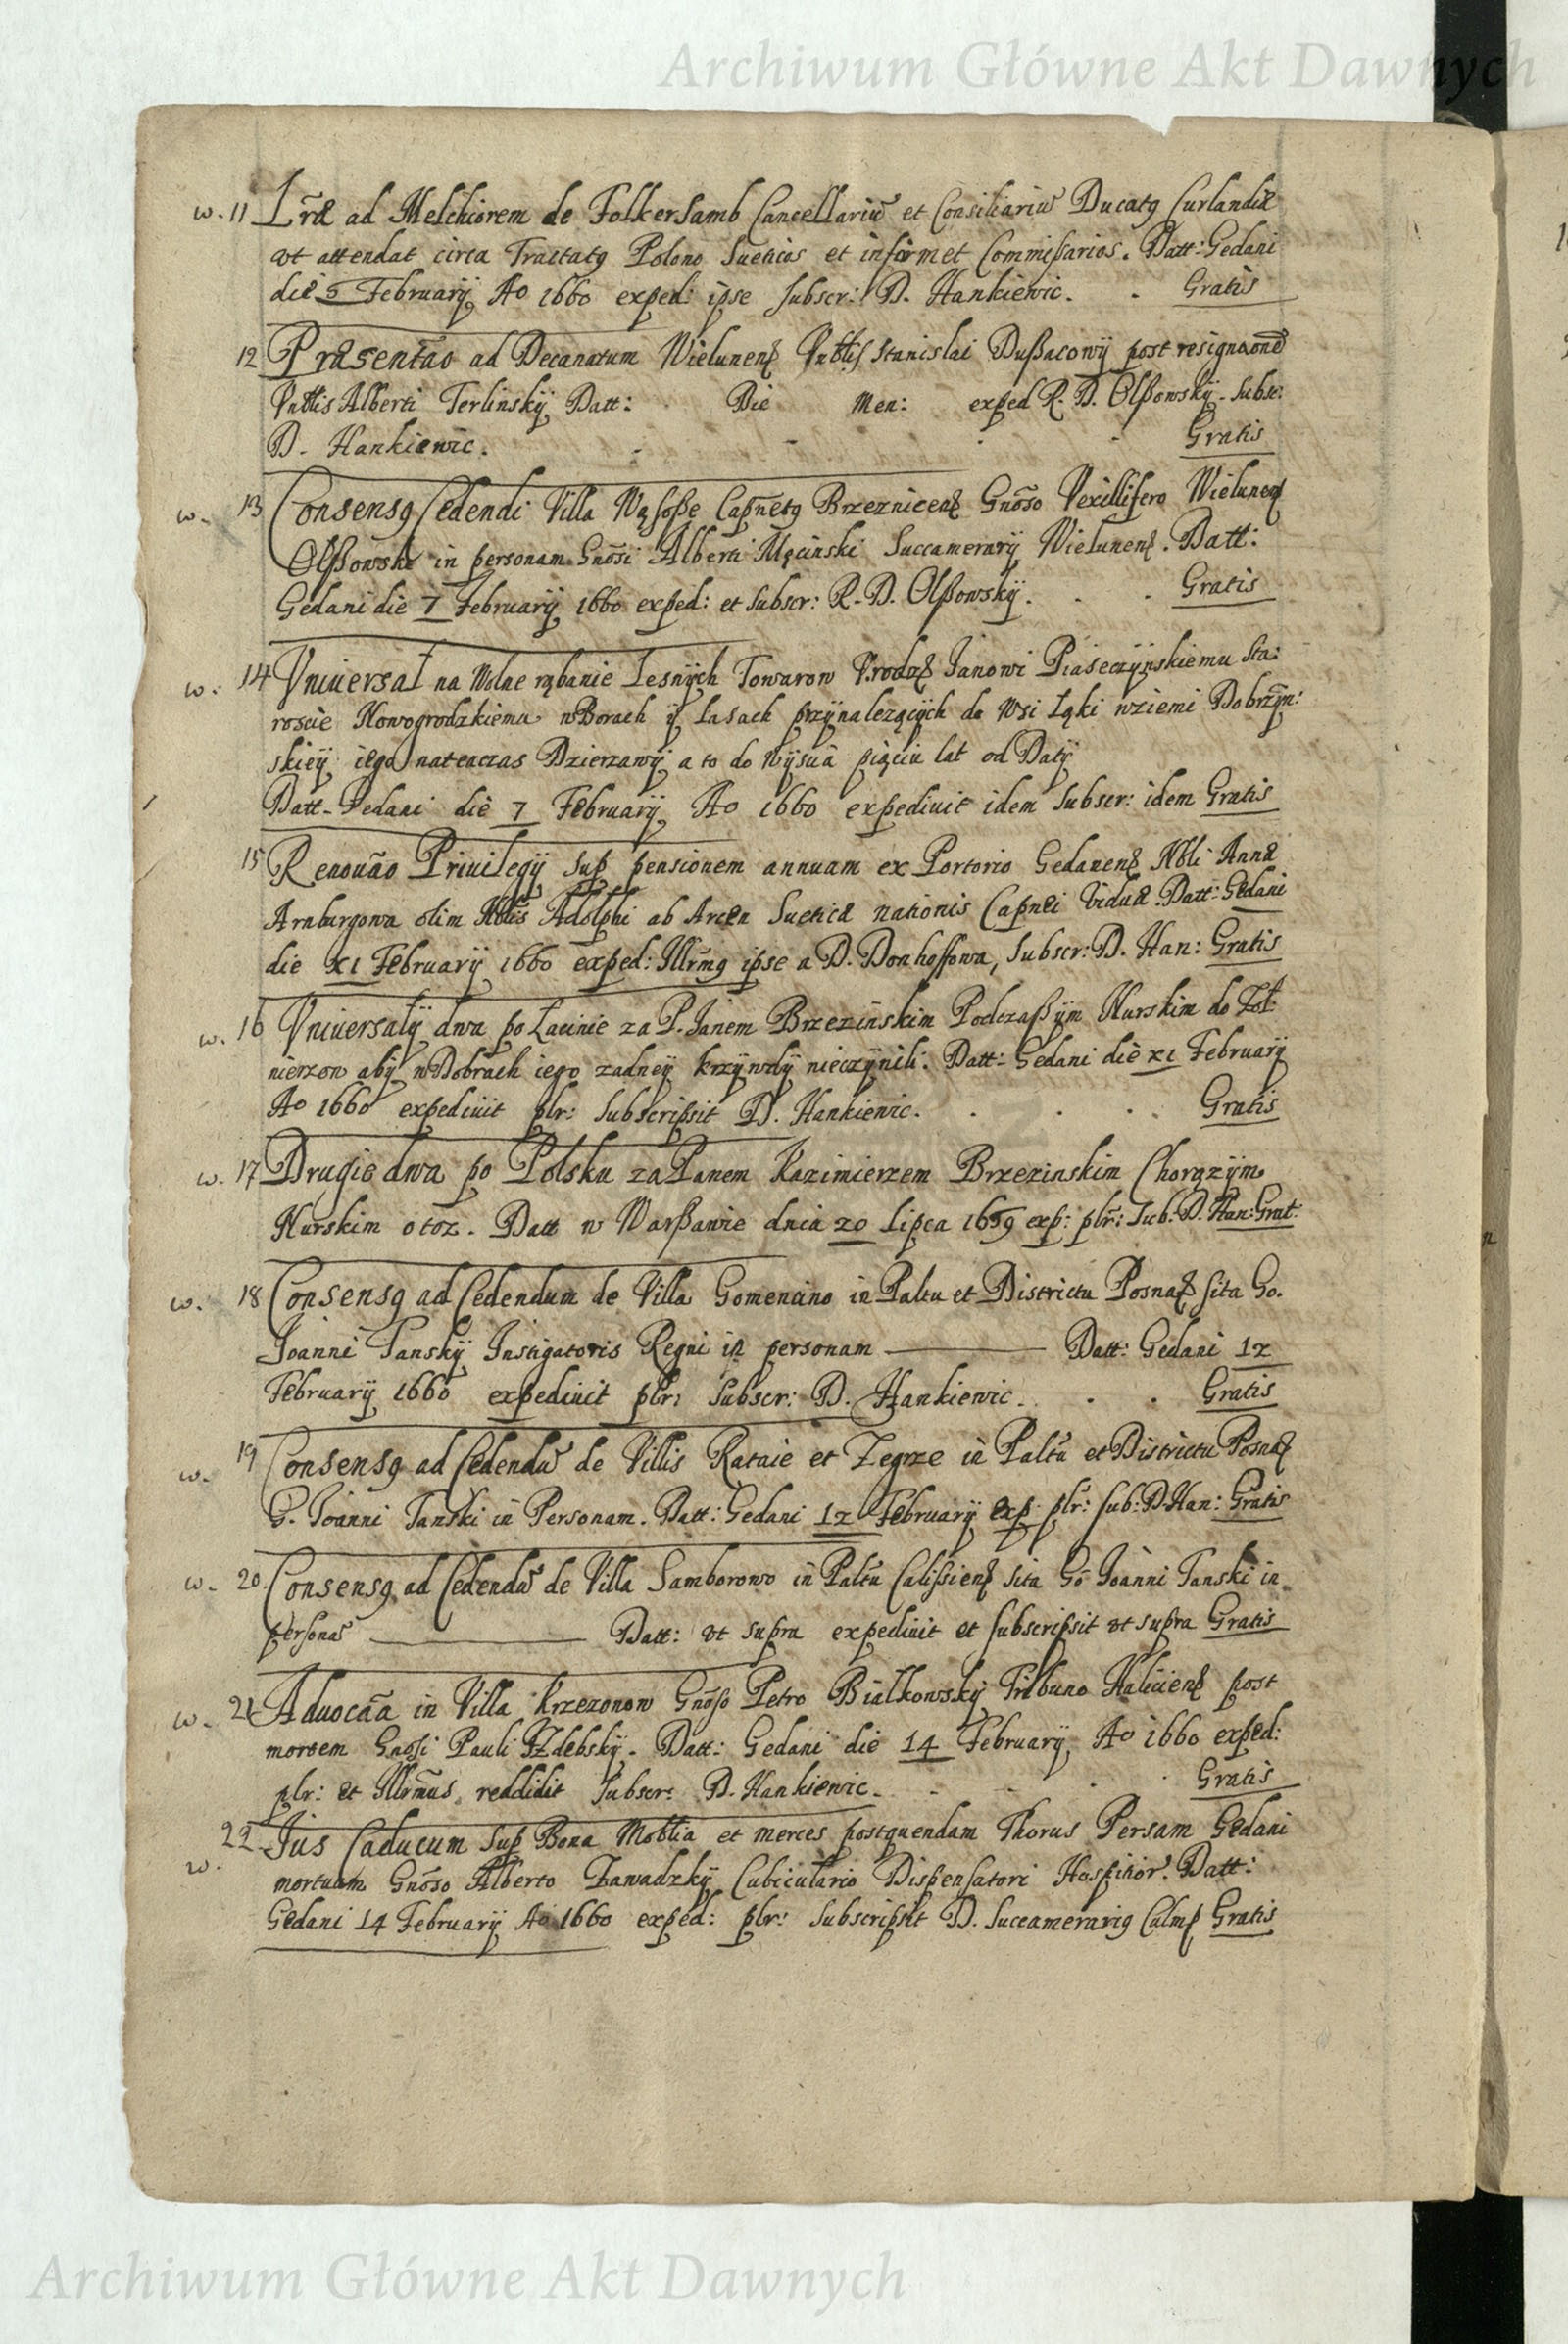 Archiwum Główne Akt Dawnych
w. 11 Lræ ad Melchiorem de Folkersamb Cancellariũ et Consiliariũ Ducatq Curlandiæ
vt attendat circa Tractatq Polono Sueticos et informet Commißarios. Datt: Gedani
die 5 February Ao 1660 exped: ipse subscr: D. Hankiewic. Gratis
12 Præsentão ad Decanatum Wielunenẜ Vnblis Stanislai Dußacowÿ post resignaõne
Vnblis Alberti Terlinskÿ Datt: Die Men: exped R. D. Olßowskÿ. Subsc:
D. Hankiewic. Gratis
w. 13 Consensq Cedendi Villa Wąsoße Capnetq Brzezniceñ Gnõso Vexillifero Wieluneñ
Olßowski in personam Gnõsi Alberti Męcinski Succamerarÿ Wieluneñ. Datt:
Gedani die 7 Februarÿ 1660 exped: et Subscr: R. D. Olßowskÿ. Gratis
w. 14 Vniuersał na Wolne rąbanie Lesnÿch Towarow Vrodz Janowi Piaseczÿnskiemu Sta:
roscie Nowogrodzkiemu w Borach ÿ Lasach przÿnalezącÿch do Wsi Łąki wziemi Dobrzÿn:
skieÿ iego natenczas Dzierzawÿ a to do Wÿscia piąciu lat od Datÿ
Datt. Gedani die 7 Februarÿ Ao 1660 expediuit idem Subscr: idem Gratis
15 Renouão Priuilegÿ sup pensionem annuam ex Portorio Gedaneñ Nbli Annæ
Arnburgowa olim Nblis Adolphi ab Arcen Sueticæ nationis Capnei Viduæ. Datt: Gedani
die XI Februarÿ 1660 exped: Illrmq ipse a D. Donhoffowa, Subscr: D. Han: Gratis
w. 16 Vniuersałÿ dwa po Łacinie za P. Janem Brzezinskim Podczaßÿm Nurskim do Żoł
nierzow abÿ w Dobrach iego zadneÿ krzÿwdÿ nieczÿnili. Datt: Gedani die XI Februarÿ
Ao 1660 expediuit plr: Subscripsit D. Hankiewic. Gratis
w. 17 Drugie dwa po Polsku za Panem Kazimierzem Brzezinskim Chorązÿm
Nurskim o toz. Datt w Warßawie dnia 20 Lipca 1659 exp: plr: Sub: D. Han: Grat:
w. 18 Consensq ad Cedendum de Villa Gomencino in Paltu et Districtu Posnañ sita Go.
Joanni Tanskÿ Instigatoris Regni in personam ——— Datt: Gedani 12
Februarÿ 1660 expediuit plr: Subscr: D. Hankiewic. Gratis
w. 19 Consensq ad Cedendũ de Villis Rataie et Zegrze in Paltũ et Districtu Posnañ
G. Joanni Tanski in Personam. Datt: Gedani 12 Februarÿ exp: plr: Sub: D. Han: Gratis
w. 20. Consensq ad Cedendũ de Villa Samborowo in Paltũ Calißieñ sita Gõ Joanni Tanski in
personã ——— Datt: vt supra expediuit et subscripsit vt supra Gratis
w. 21 Aduocãa in Villa Krzezonow Gnõso Petro Białkowskÿ Tribuno Halicieñ post
mortem Gnosi Pauli Izdebskÿ. Datt: Gedani die 14 Februarÿ Ao 1660 exped:
plr: et Illrmus reddidit Subscr: D. Hankiewic. Gratis
w. 22 Jus Caducum sup Bona Moblia et merces postquendam Thorus Persam Gedani
mortuum Gnõso Alberto Zawadzkÿ Cubiculario Dispensatori Hospitior. Datt:
Gedani 14 Februarÿ Ao 1660 exped: plr: Subscripsit D. Succamerariq Culmẜ Gratis
Archiwum Główne Akt Dawnych